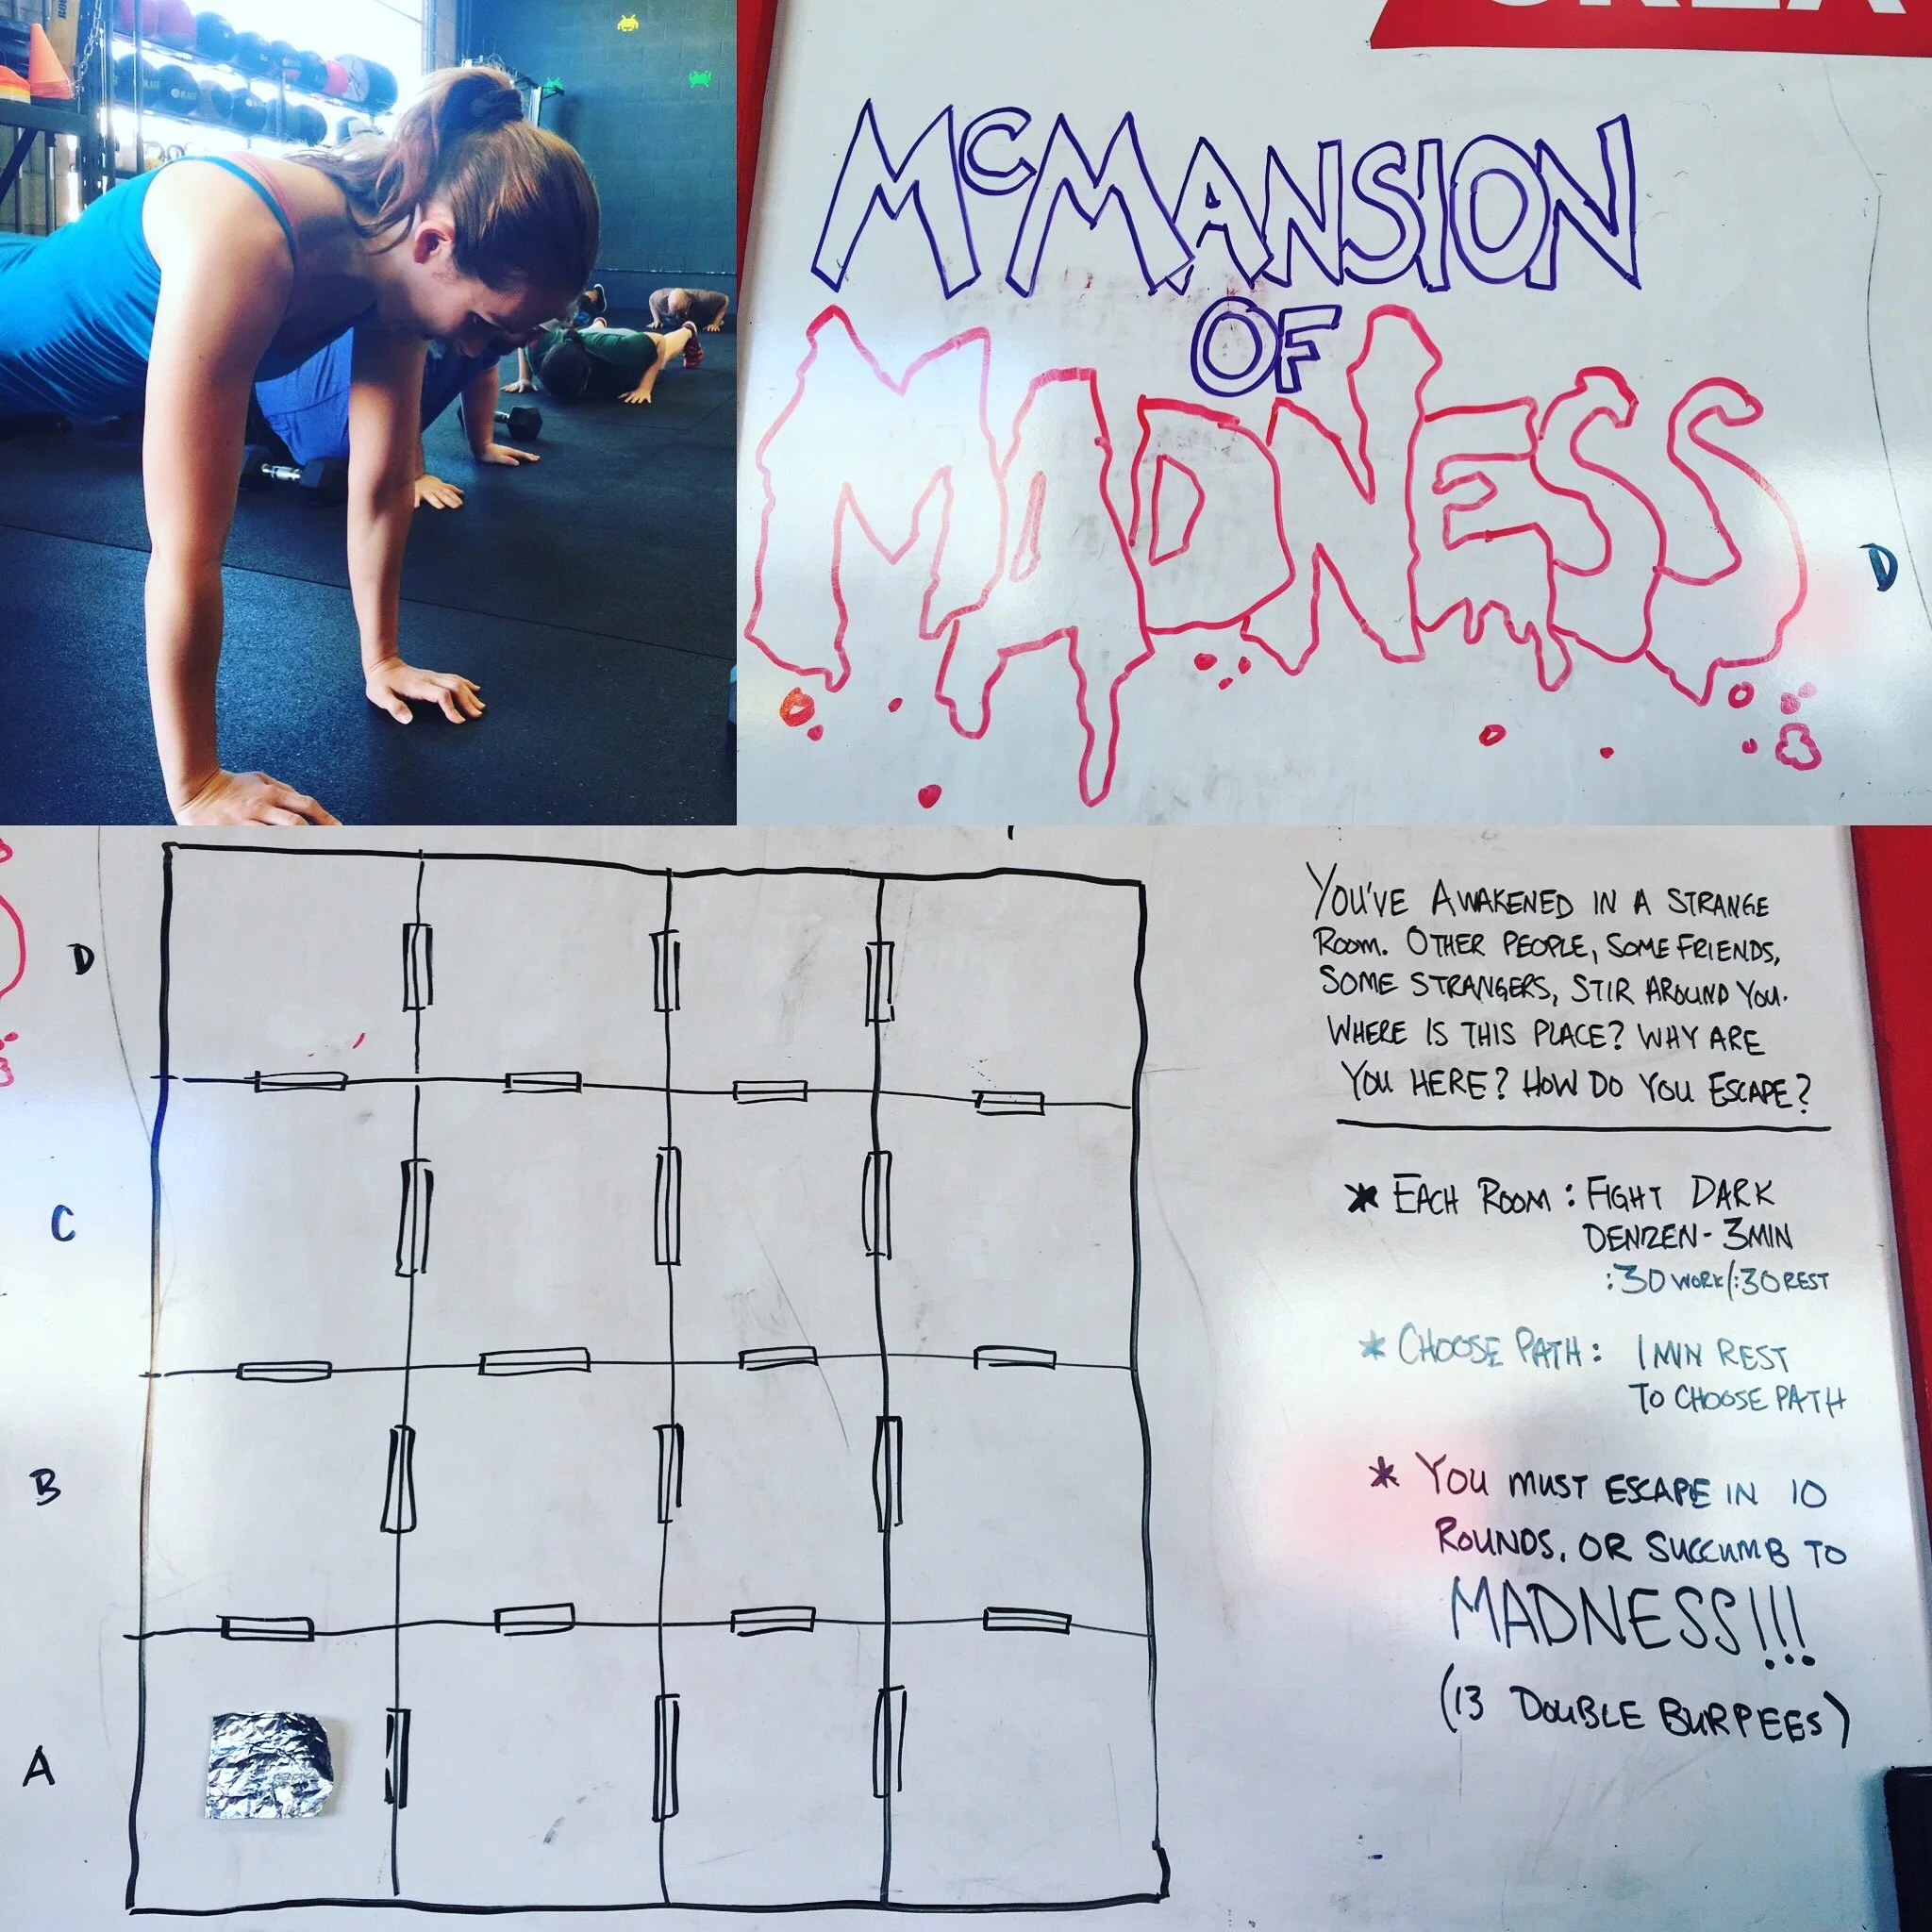 McMANSION
OF
MADNESS
D
D
C
B
A
YOU'VE AWAKENED IN A STRANGE
ROOM. OTHER PEOPLE, SOME FRIENDS,
SOME STRANGERS, STIR AROUND YOU.
WHERE IS THIS PLACE? WHY ARE
YOU HERE? HOW DO YOU ESCAPE?
* EACH ROOM: FIGHT DARK
DENIZEN - 3MIN
:30 WORK/:30 REST
* CHOOSE PATH: 1 MIN REST
TO CHOOSE PATH
* YOU MUST ESCAPE IN 10
ROUNDS, OR SUCCUMB TO
MADNESS!!!
(13 DOUBLE BURPEES)